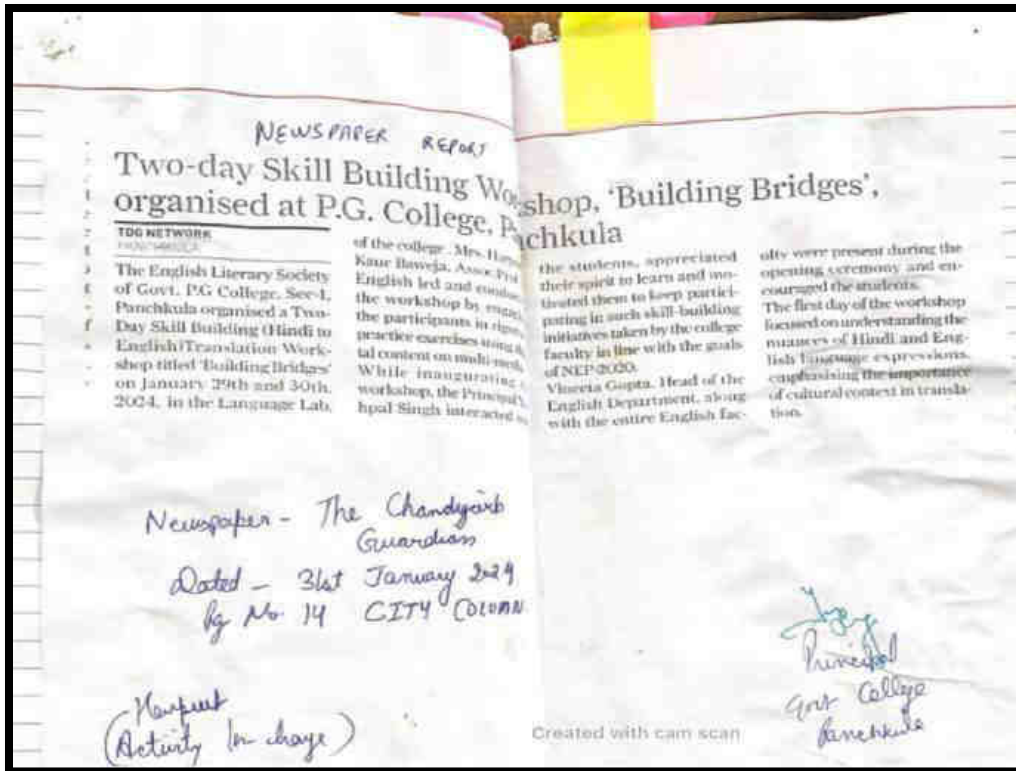 NEWSPAPER REPORT
Two-day Skill Building Wo shop, 'Building Bridges',
organised at P.G. College, P chkula
TDG NETWORK
PANCHKULA
The English Literary Society
of Govt. P.G College, Sec-1,
Panchkula organised a Two-
Day Skill Building (Hindi to
English)Translation Work-
shop titled 'Building Bridges'
on January 29th and 30th,
2024, in the Language Lab,
of the college . Mrs.
Kaur Baweja, Assoc. Prof
English led and
the workshop by
the participants in
practice exercises using
tal content on
While inaugurating
workshop, the Principal
hpal Singh interacted
the students, appreciated
their spirit to learn and mo-
tivated them to keep partici-
pating in such skill-building
initiatives taken by the college
faculty in line with the goals
of NEP 2020.
Gupta, Head of the
English Department, along
with the entire English fac-
ulty were present during the
opening ceremony and en-
couraged the students.
The first day of the workshop
focused on understanding the
nuances of Hindi and Eng-
lish language expressions,
emphasising the importance
of cultural context in transla-
tion.
Newspaper - The
Guardian
Dated - 31st January 2024
Pg No. 14 CITY COLUMN
Harpreet
(Activity In charge)
Principal
Govt College
Panchkula
Created with cam scan